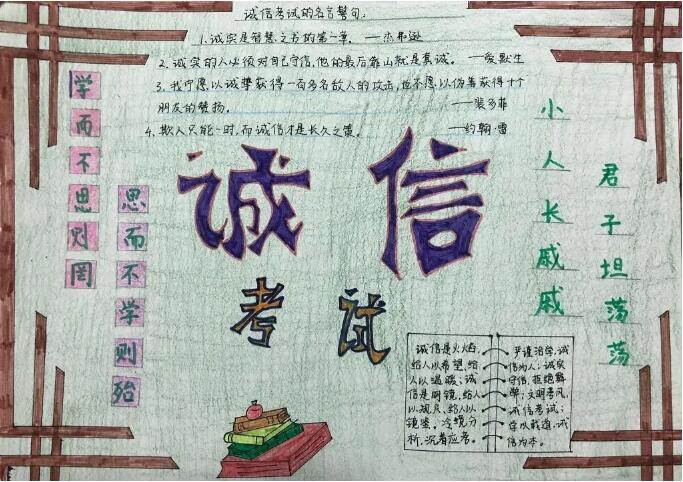 诚信考试的名言警句:
1.诚实是智慧之书的第一章。——杰弗逊
2.诚实的人必须对自己守信,他的最后靠山就是真诚。——爱默生
3.我宁愿以诚挚获得一百多名敌人的攻击,也不愿以伪善获得十个
朋友的赞扬。——裴多菲
4.欺人只能一时,而诚信才是长久之策。——约翰·雷
学而不思则罔
思而不学则殆
诚信
考试
君子坦荡荡
小人长戚戚
诚信是火焰,
给人以希望,给
人以温暖;诚
信是明镜,给人
以观只,给人以
镜鉴。冷镜分
析,沉着应考。
严谨治学,诚
信为人;诚实
守信,拒绝舞
弊;文明考风,
诚信考试;
学以载道,诚
信为本。